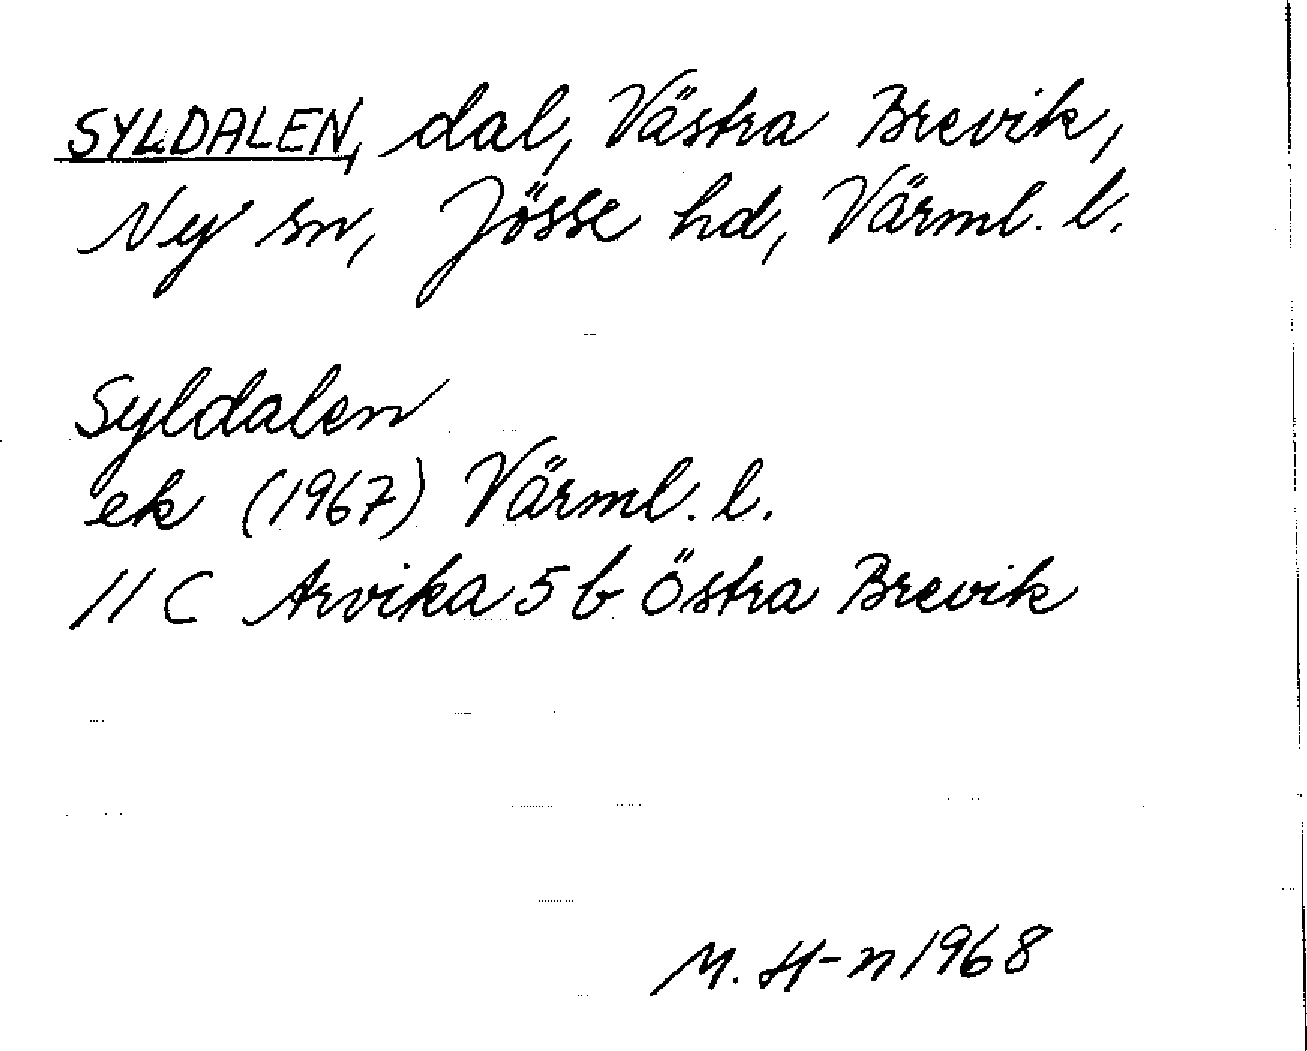 SYLDALEN, dal, Västra Brevik,
Ny sn, Jösse hd, Värml. l.
Syldalen
ek (1967) Värml. l.
11 C Arvika 5 b Östra Brevik
M. H-n 1968